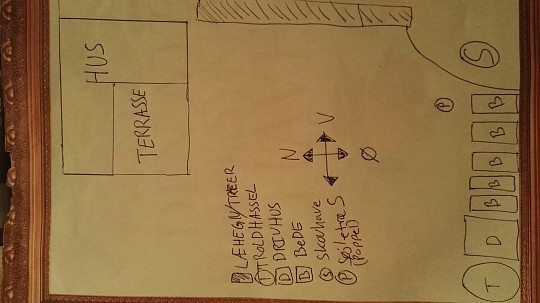 HUS
TERRASSE
LÆHEGN/TRÆER
T TROLDHASSEL
D DRIVHUS
B BEDE
S Skovhave
P Søjletræ
(POPPEL)
N
V
S
Ø
P
S
T
D
B
B
B
B
B